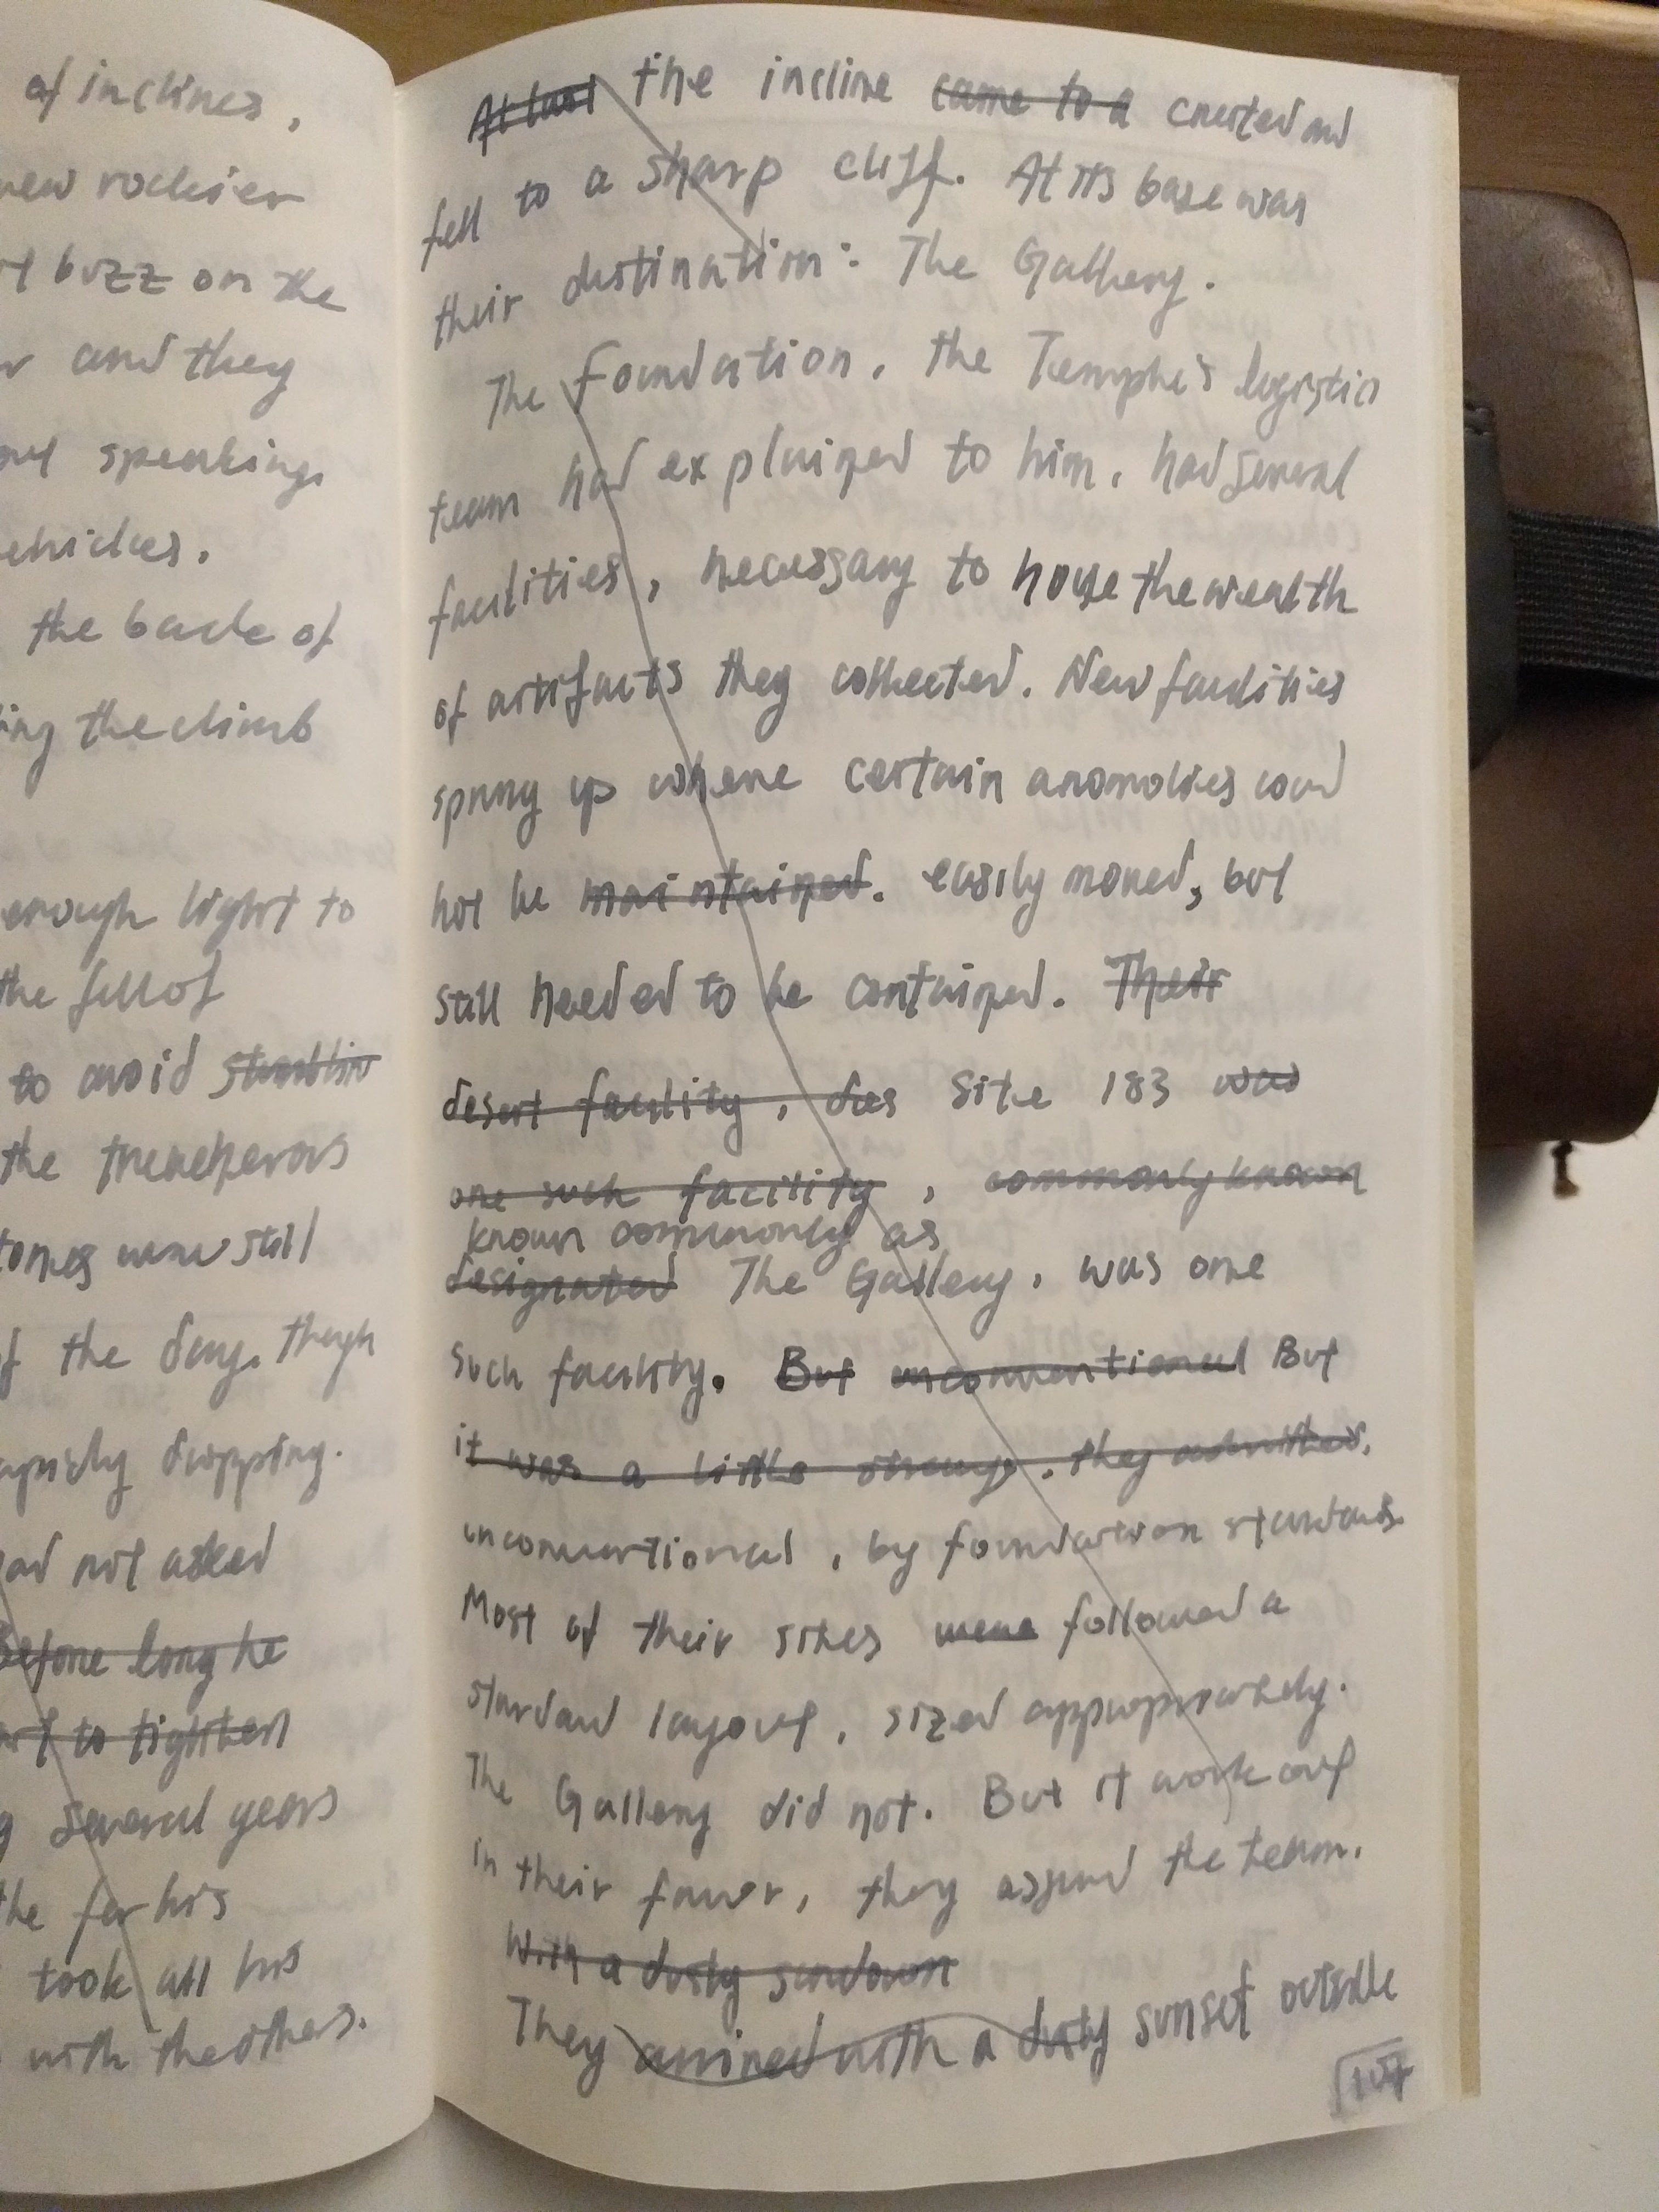 of inclines,
new rockier
buzz on the
and they
speaking
vehicles.
the back of
ing the climb
enough light to
the fell of
to avoid stumblin
the treacherous
tones were still
of the day, though
dropping.
ad not asked
Before long he
to tighten
several years
the for his
took all his
with the others.
At last the incline came to a crested and
fell to a sharp cliff. At its base was
their destination: The Gallery.
The Foundation, the Temple's logistics
team had explained to him, had several
facilities, necessary to house the wealth
of artifacts they collected. New facilities
sprung up where certain anomolies coud
not be maintained. easily moved, but
still needed to be contained. Their
desert facility, des Site 183 was
one such facility, commonly known
known commonly as
designated The Gallery, was one
such facility. But unconventional But
it was a little strange, they admitted,
unconventional, by foundation standards.
Most of their sites were followed a
standard layout, sized appropriately.
The Gallery did not. But it work out
in their favor, they assured the team.
With a dusty sundown
They arrived with a dusty sunset outside
107